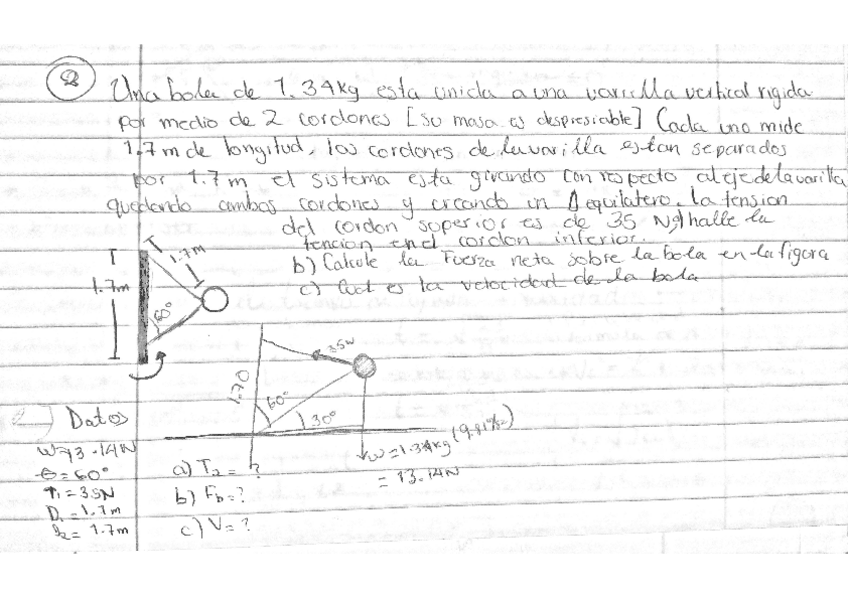 2
Una bola de 1.34kg esta unida a una varilla vertical rigida
por medio de 2 cordones [su masa es despresiable] Cada uno mide
1.7m de longitud, los cordones de la varilla estan separados
por 1.7m el sistema esta girando con respecto al eje de la varilla
quedando ambos cordones y creando un Δ equilatero. la tension
del cordon superior es de 35 N a) halle la
tencion en el cordon inferior.
b) Calcule la Fuerza neta sobre la bola en la figora
c) Cual es la velocidad de la bola
1.7m
1.7m
60°
35N
1.70
60°
30°
W=1.34kg (9.81
= 13.14N
Datos
W=13.14N
θ=60°
T1=35N
D1=1.7m
= 1.7m
a) T2= ?
b) Fb=?
c) V=?